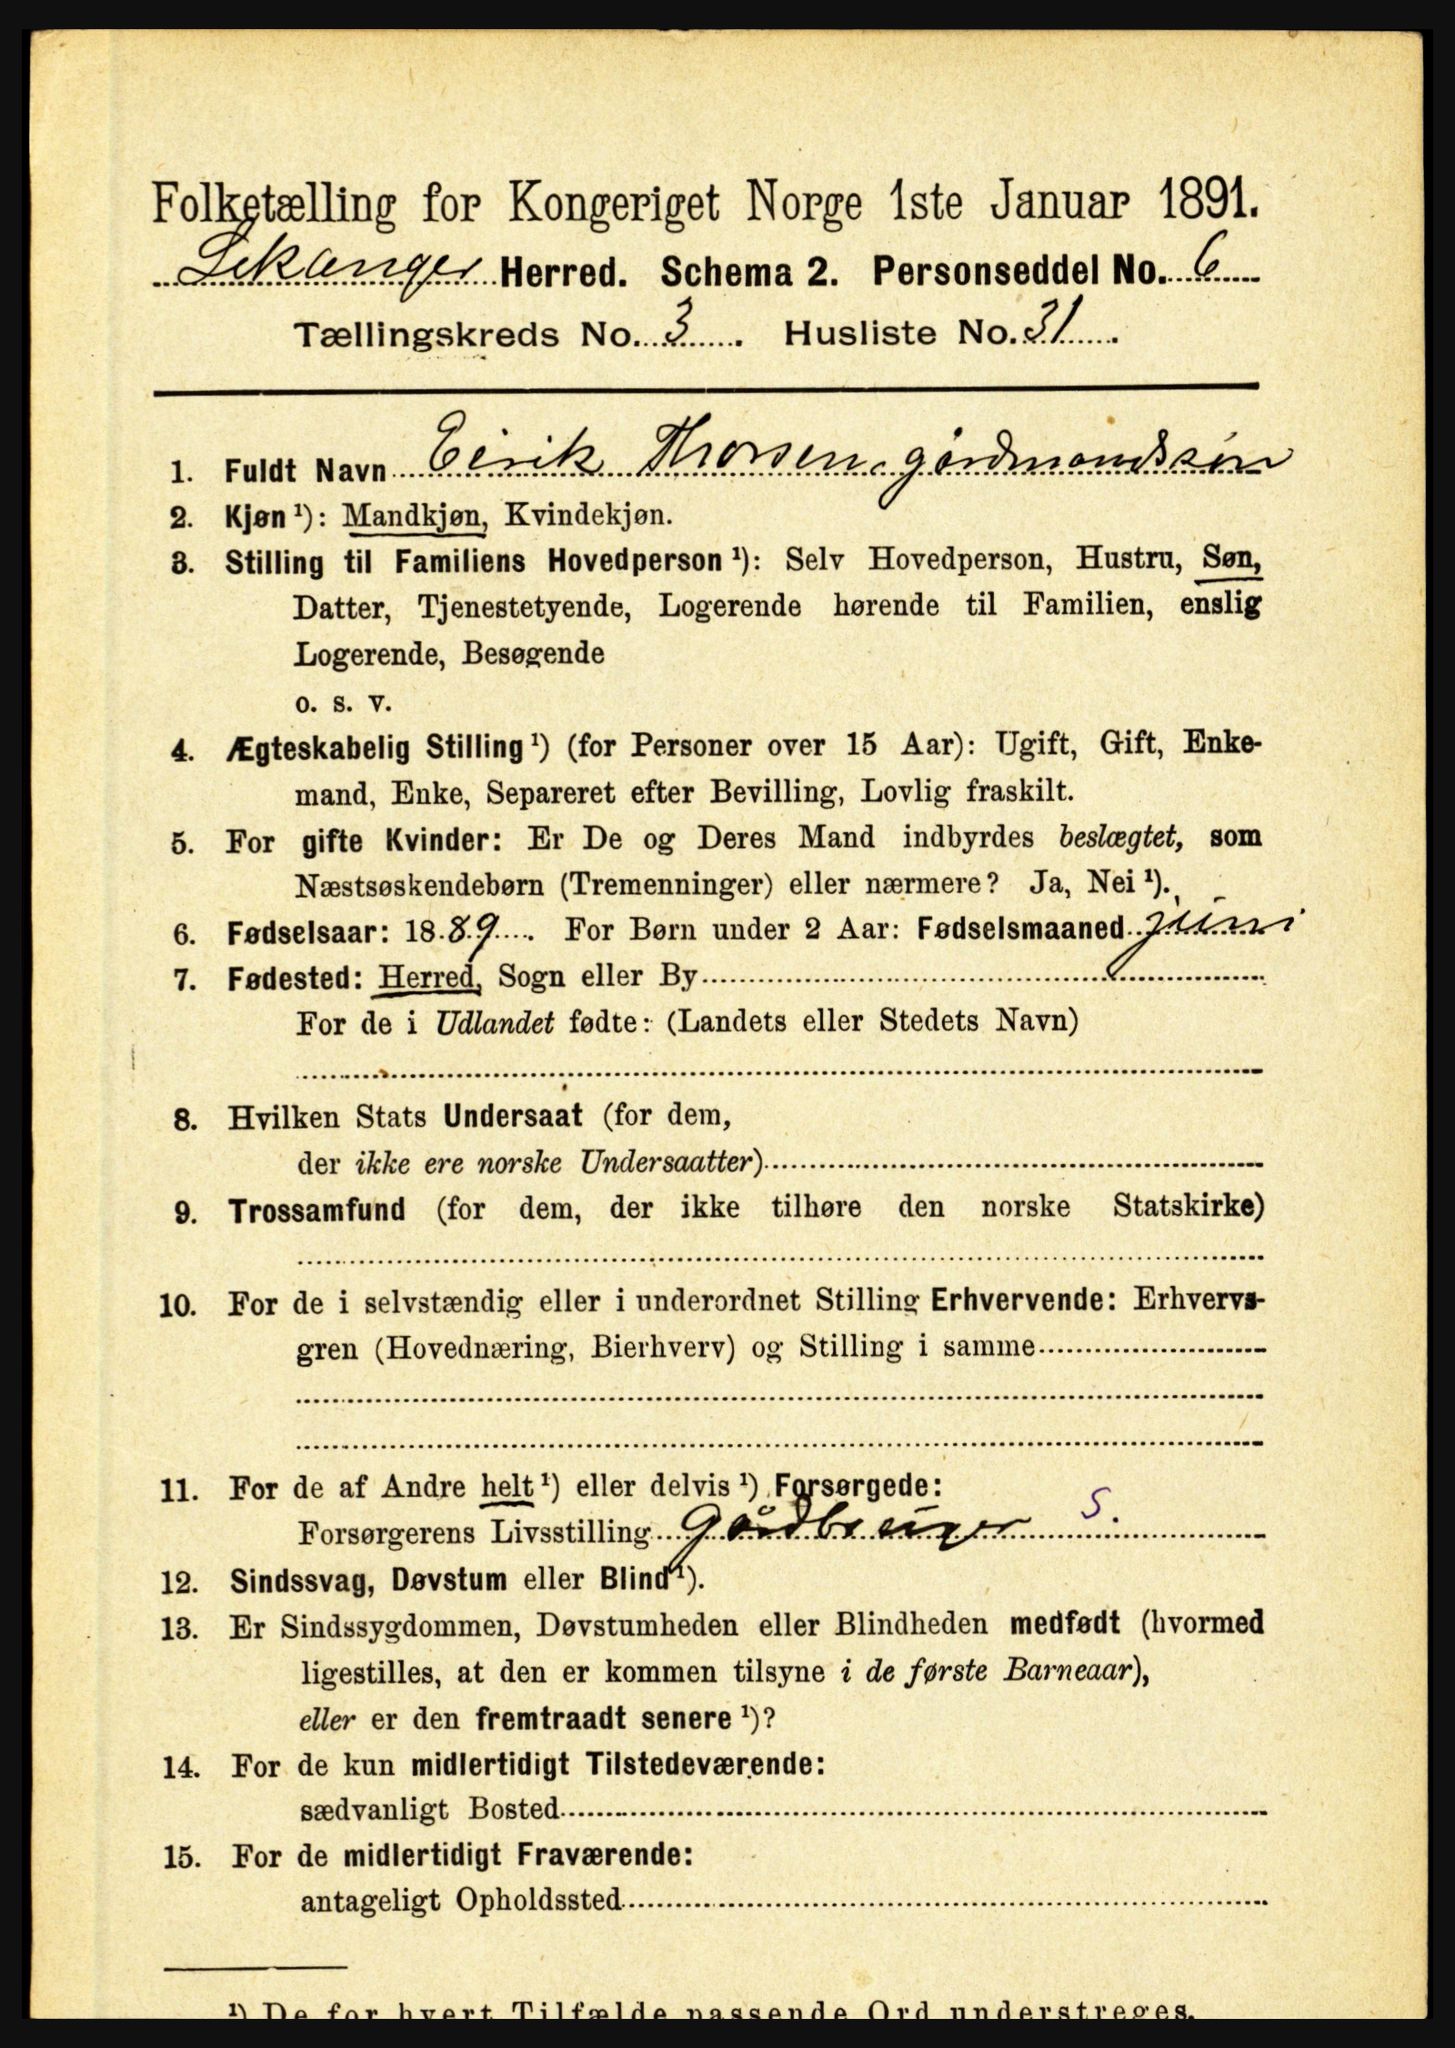 Folketælling for Kongeriget Norge 1ste Januar 1891.
Leikanger Herred. Schema 2. Personseddel No. 6
Tællingskreds No. 3. Husliste No. 31.
1. Fuldt Navn Eirik Thorsen. gårdmandssøn
2. Kjøn ¹): Mandkjøn, Kvindekjøn.
3. Stilling til Familiens Hovedperson ¹): Selv Hovedperson, Hustru, Søn,
Datter, Tjenestetyende, Logerende hørende til Familien, enslig
Logerende, Besøgende
o. s. v.
4. Ægteskabelig Stilling ¹) (for Personer over 15 Aar): Ugift, Gift, Enke-
mand, Enke, Separeret efter Bevilling, Lovlig fraskilt.
5. For gifte Kvinder: Er De og Deres Mand indbyrdes beslægtet, som
Næstsøskendebørn (Tremenninger) eller nærmere? Ja, Nei ¹).
6. Fødselsaar: 1889. For Børn under 2 Aar: Fødselsmaaned juni
7. Fødested: Herred, Sogn eller By
For de i Udlandet fødte: (Landets eller Stedets Navn)
8. Hvilken Stats Undersaat (for dem,
der ikke ere norske Undersaatter)
9. Trossamfund (for dem, der ikke tilhøre den norske Statskirke)
10. For de i selvstændig eller i underordnet Stilling Erhvervende: Erhvervs-
gren (Hovednæring, Bierhverv) og Stilling i samme
11. For de af Andre helt ¹) eller delvis ¹) Forsørgede:
Forsørgerens Livsstilling Gårdbruger S.
12. Sindssvag, Døvstum eller Blind ¹).
13. Er Sindssygdommen, Døvstumheden eller Blindheden medfødt (hvormed
ligestilles, at den er kommen tilsyne i de første Barneaar),
eller er den fremtraadt senere ¹)?
14. For de kun midlertidigt Tilstedeværende:
sædvanligt Bosted
15. For de midlertidigt Fraværende:
antageligt Opholdssted
¹) De for hvert Tilfælde passende Ord understreges.